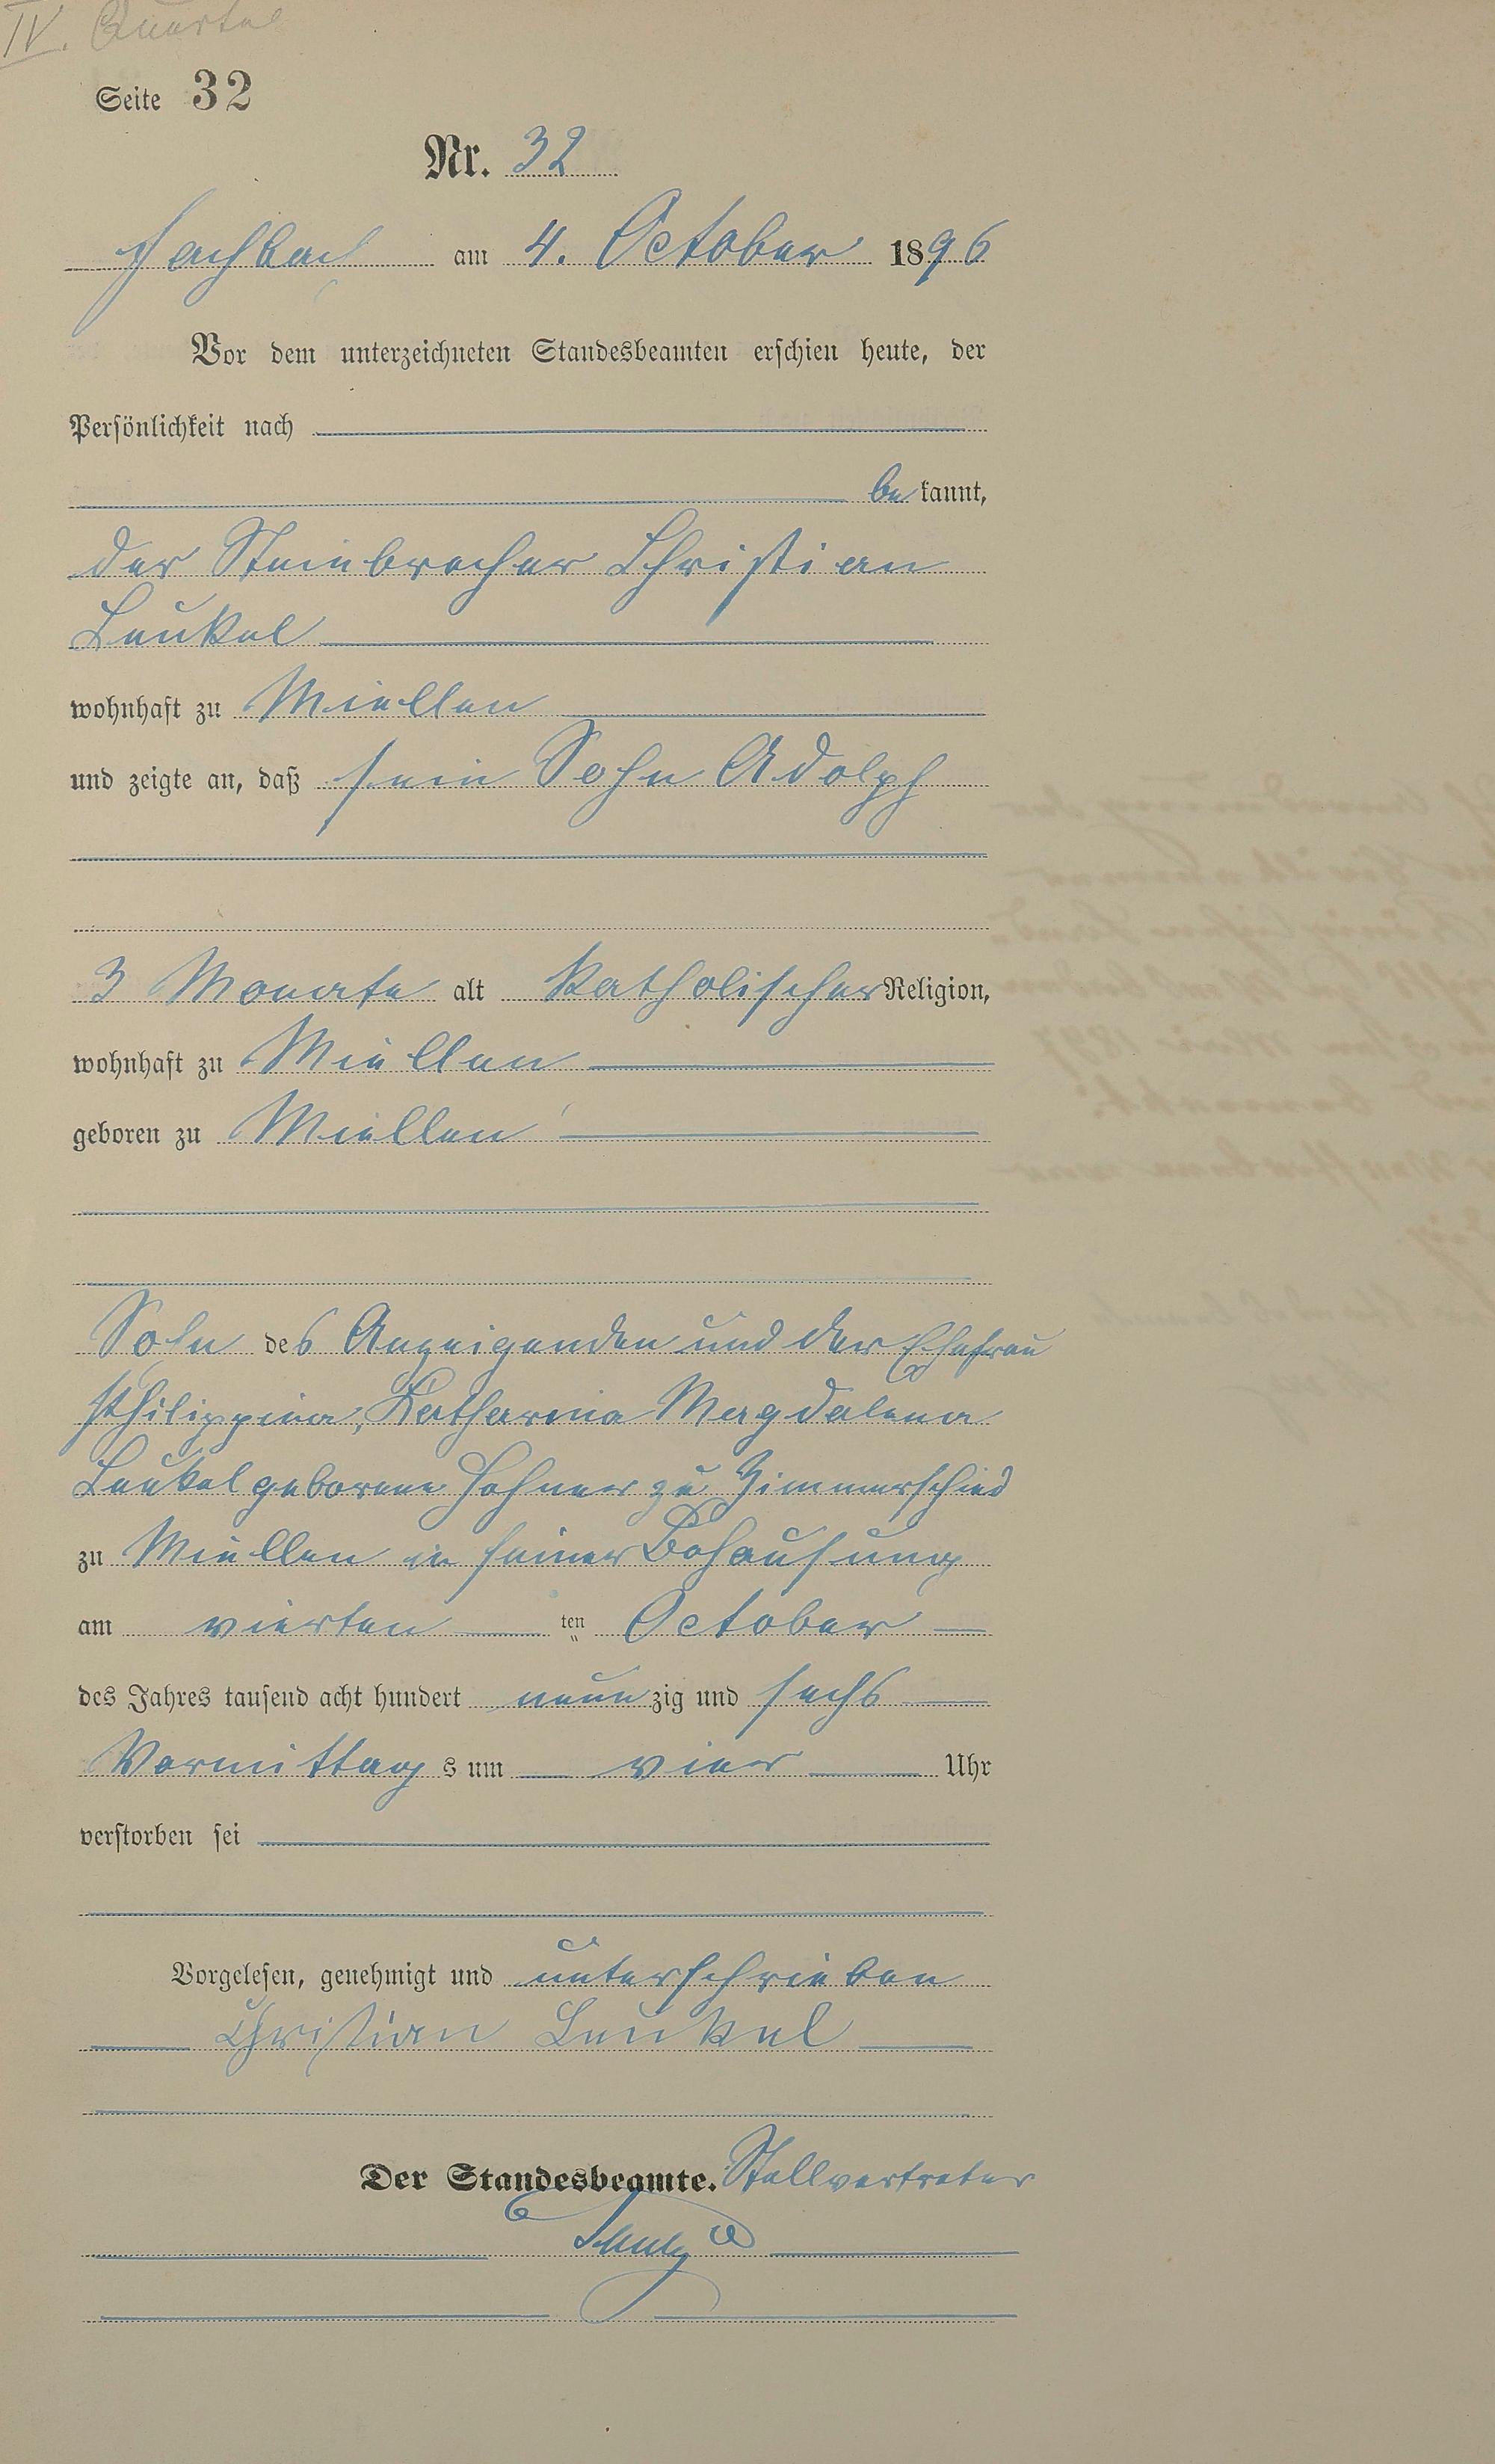 IV. Quartal
Seite 32
Nr. 32
Fachbach am 4. October 1896
Vor dem unterzeichneten Standesbeamten erschien heute, der
Persönlichkeit nach
be kannt,
der Steinbrecher Christian
Leukel
wohnhaft zu Miellen
und zeigte an, daß sein Sohn Adolph
3 Monate alt katholischer Religion,
wohnhaft zu Miellen
geboren zu Miellen
Sohn des Anzeigenden und der Ehefrau
Philippina, Katharina Magdalena
Leukel geborene Hohner zu Zimmerschied
zu Miellen in seiner Behausung
am vierten ten October
des Jahres tausend acht hundert neun zig und sechs
Vormittag s um vier Uhr
verstorben sei
Vorgelesen, genehmigt und unterschrieben
Christian Leukel
Der Standesbeamte. Stellvertreter